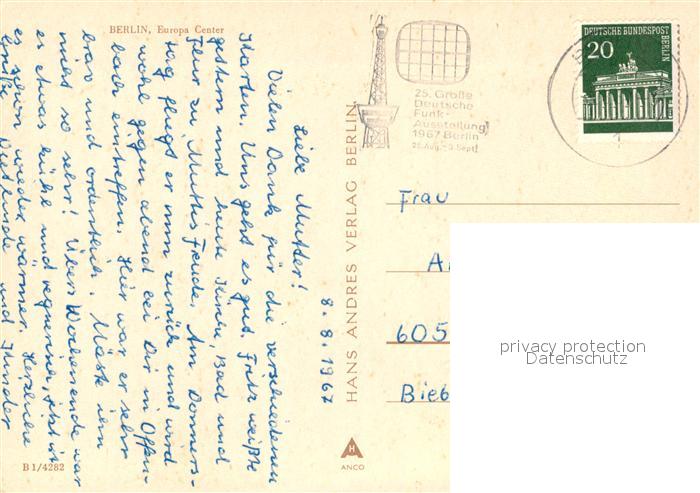 BERLIN, Europa Center
8.8.1967
Liebe Mutter!
Vielen Dank für die verschiedenen
Karten. Uns geht es gut. Fritz weißte
gestern und heute Küche, Bad und
Flur zu Muttis Freude. Am Donners-
tag fliegt er nun zurück und wird
wohl gegen abend bei Dir in Offen-
bach eintreffen. Hier war er sehr
brav und ordentlich. Mäste ihn
nicht so sehr! Über Wochenende war
es etwas kühl und regnerisch, jetzt ist
es schon wieder wärmer. Herzliche
Grüße und Kinder
B 1/4282
HANS ANDRES VERLAG BERLIN
H
ANCO
25. Große
Deutsche
Funk-
Ausstellung
1967 Berlin
25. Aug. - 3. Sept.
DEUTSCHE BUNDESPOST
BERLIN
20
Frau
605
Bieb
privacy protection
Datenschutz